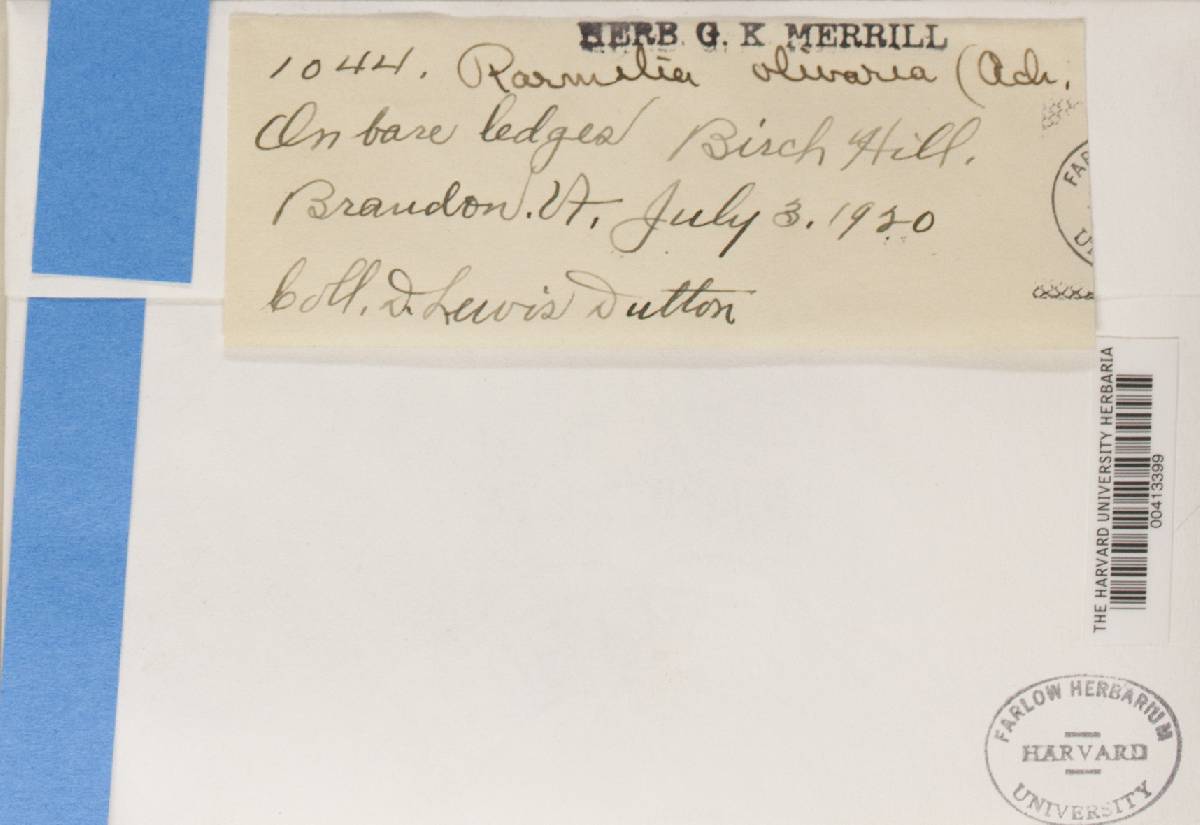 HERB. G. K. MERRILL
1044. Parmelia olivaria (Ach.
On bare ledges Birch Hill.
Brandon. Vt. July 3. 1920
Coll. D. Lewis Dutton
FAR
U
THE HARVARD UNIVERSITY HERBARIA
00413399
FARLOW HERBARIUM
HARVARD
UNIVERSITY